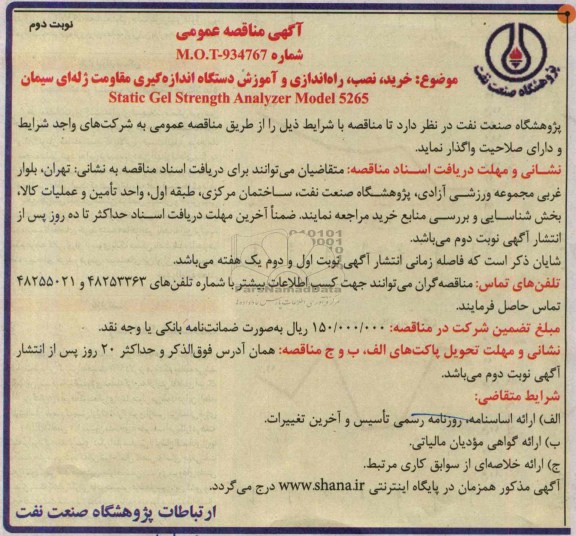 نوبت دوم
آگهی مناقصه عمومی
شماره M.O.T-934767
موضوع: خرید، نصب، راه‌اندازی و آموزش دستگاه اندازه‌گیری مقاومت ژله‌ای سیمان
Static Gel Strength Analyzer Model 5265
پژوهشگاه صنعت نفت
پژوهشگاه صنعت نفت در نظر دارد تا مناقصه با شرایط ذیل را از طریق مناقصه عمومی به شرکت‌های واجد شرایط
و دارای صلاحیت واگذار نماید.
نشانی و مهلت دریافت اسناد مناقصه: متقاضیان می‌توانند برای دریافت اسناد مناقصه به نشانی: تهران، بلوار
غربی مجموعه ورزشی آزادی، پژوهشگاه صنعت نفت، ساختمان مرکزی، طبقه اول، واحد تأمین و عملیات کالا،
بخش شناسایی و بررسی منابع خرید مراجعه نمایند. ضمناً آخرین مهلت دریافت اسناد حداکثر تا ده روز پس از
انتشار آگهی نوبت دوم می‌باشد.
شایان ذکر است که فاصله زمانی انتشار آگهی نوبت اول و دوم یک هفته می‌باشد.
تلفن‌های تماس: مناقصه‌گران می‌توانند جهت کسب اطلاعات بیشتر با شماره تلفن‌های ۴۸۲۵۳۳۶۳ و ۴۸۲۵۵۰۲۱
تماس حاصل فرمایند.
مبلغ تضمین شرکت در مناقصه: ۱۵۰/۰۰۰/۰۰۰ ریال به‌صورت ضمانت‌نامه بانکی یا وجه نقد.
نشانی و مهلت تحویل پاکت‌های الف، ب و ج مناقصه: همان آدرس فوق‌الذکر و حداکثر ۲۰ روز پس از انتشار
آگهی نوبت دوم می‌باشد.
شرایط متقاضی:
الف) ارائه اساسنامه، روزنامه رسمی تأسیس و آخرین تغییرات.
ب) ارائه گواهی مؤدیان مالیاتی.
ج) ارائه خلاصه‌ای از سوابق کاری مرتبط.
آگهی مذکور همزمان در پایگاه اینترنتی www.shana.ir درج می‌گردد.
ارتباطات پژوهشگاه صنعت نفت